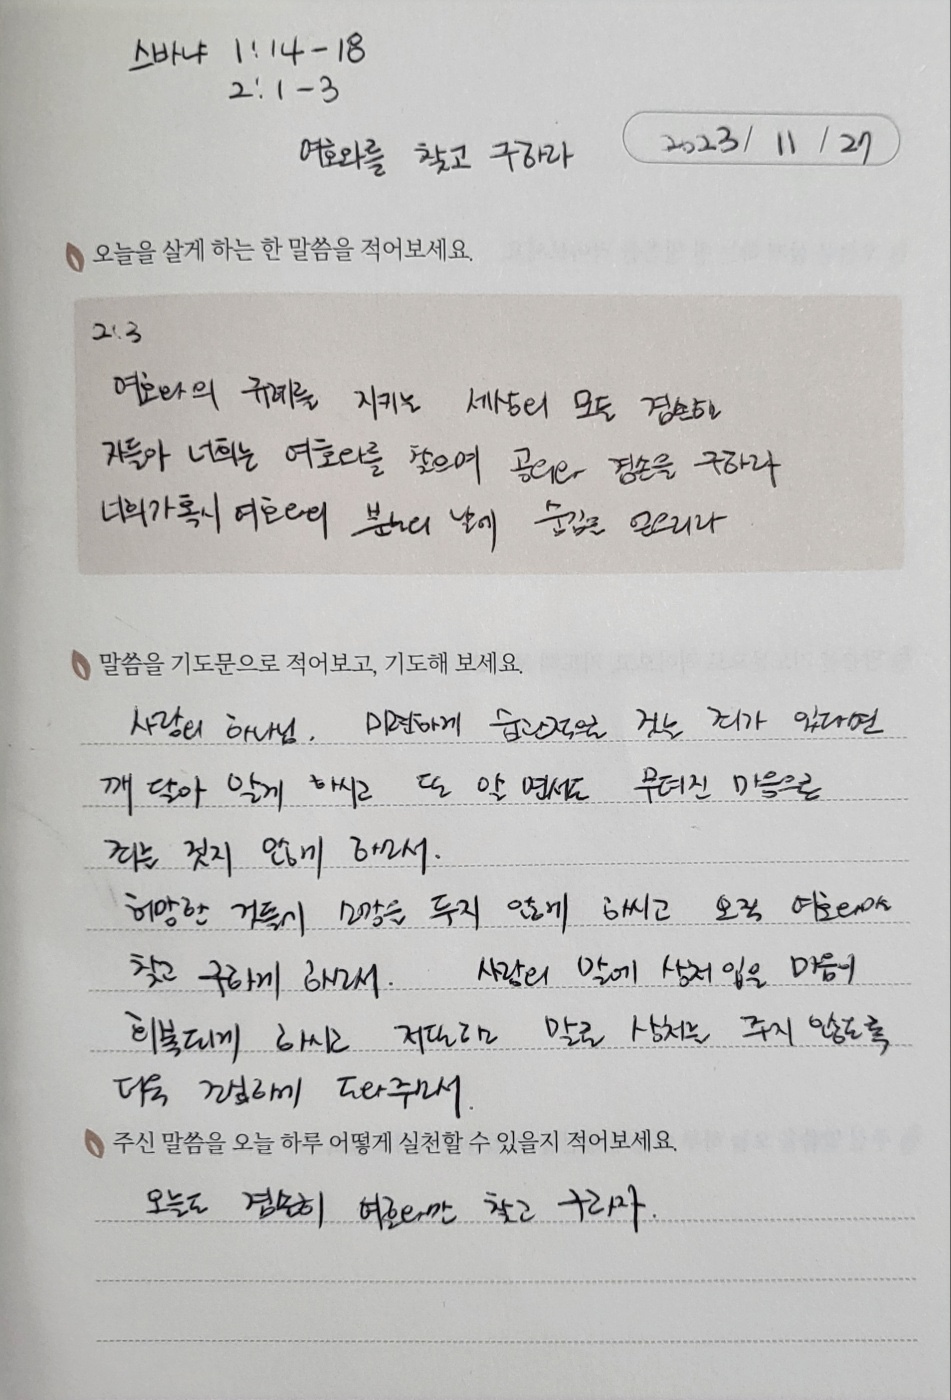 스바냐 1:14-18
2:1-3
여호와를 찾고 구하라
2023/ 11 / 27
오늘을 살게 하는 한 말씀을 적어보세요.
2:3
여호와의 규례를 지키는 세상의 모든 겸손한
자들아 너희는 여호와를 찾으며 공의와 겸손을 구하라
너희가 혹시 여호와의 분노의 날에 숨김을 얻으리라
말씀을 기도문으로 적어보고, 기도해 보세요.
사랑의 하나님. 미련하게 습관적으로 짓는 죄가 있다면
깨 달아 알게 하시고 또 알 면서도 무뎌진 마음으로
죄를 짓지 않게 하소서.
허망한 것들에 소망을 두지 않게 하시고 오직 여호와만
찾고 구하게 하소서. 사람의 말에 상처 입은 마음이
회복되게 하시고 저또한 말로 상처를 주지 않도록
더욱 도와주소서.
주신 말씀을 오늘 하루 어떻게 실천할 수 있을지 적어보세요.
오늘도 겸손히 여호와만 찾고 구하자.